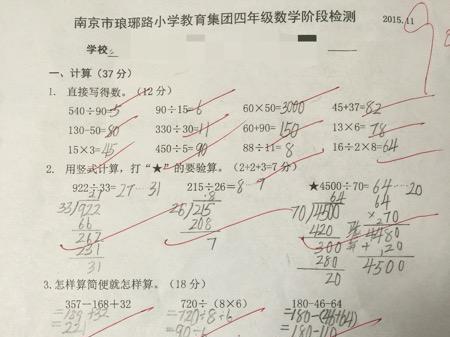 南京市琅琊路小学教育集团四年级数学阶段检测 2015.11
学校
一、计算(37 分)
1. 直接写得数。(12 分)
540÷90=5 90÷15=6 60×50=3000 45+37=82
130-50=80 330÷30=11 60+90=150 13×6=78
15×3=45 450÷5=90 88÷11=8 16÷2×8=64
2. 用竖式计算，打“★”的要验算。(2+2+3=7 分)
922÷33=27……31 215÷26=8……7 ★4500÷70=64……20
27 8 64 64
33/922 26/215 70/4500 ×70
66 208 420 4480
262 7 300 +20
231 280 4500
31 20
3.怎样算简便就怎样算。(18 分)
357-168+32 720÷(8×6) 180-46-64
=189+32 =720÷8÷6 =180-(46+64)
=221 =90÷6 =180-110